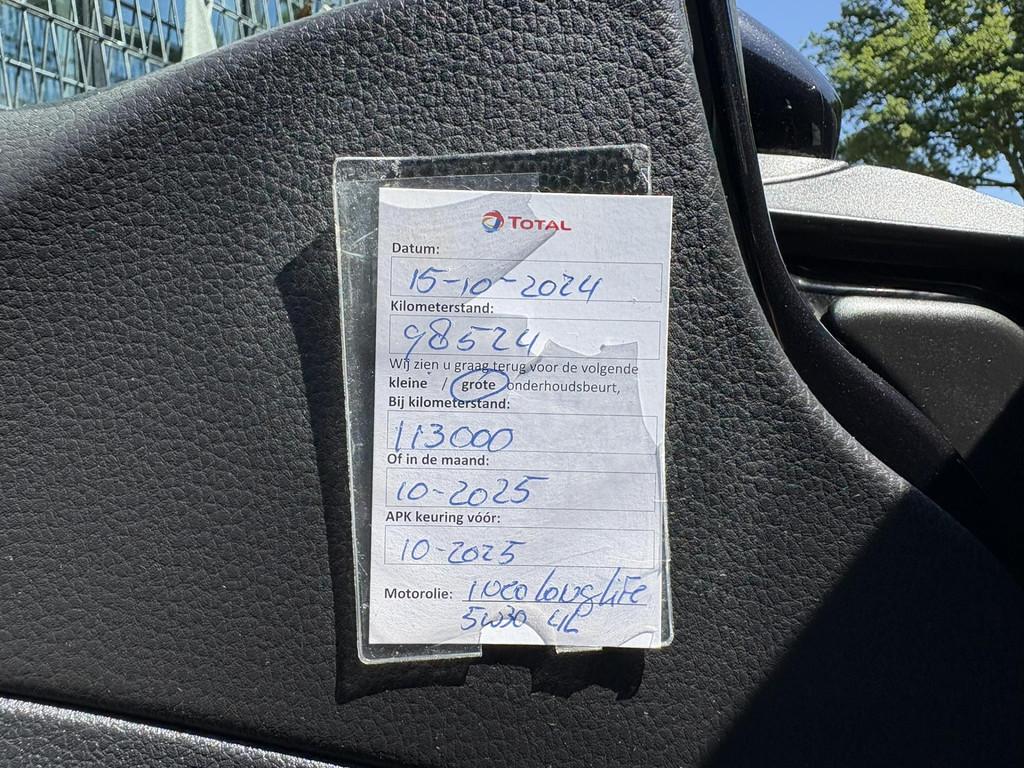 TOTAL
Datum:
15-10-2024
Kilometerstand:
98524
Wij zien u graag terug voor de volgende
kleine / grote onderhoudsbeurt,
Bij kilometerstand:
113000
Of in de maand:
10-2025
APK keuring vóór:
10-2025
Motorolie: longlife
5w30 4L